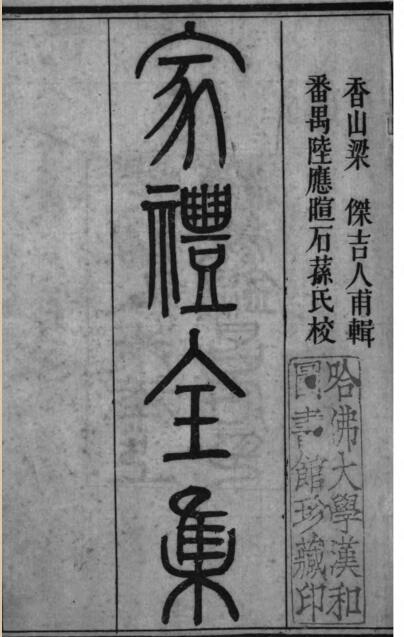 香山梁 傑吉人甫輯
番禺陸應暄石蓀氏校
家禮全集
哈佛大學漢和
圖書館珍藏印